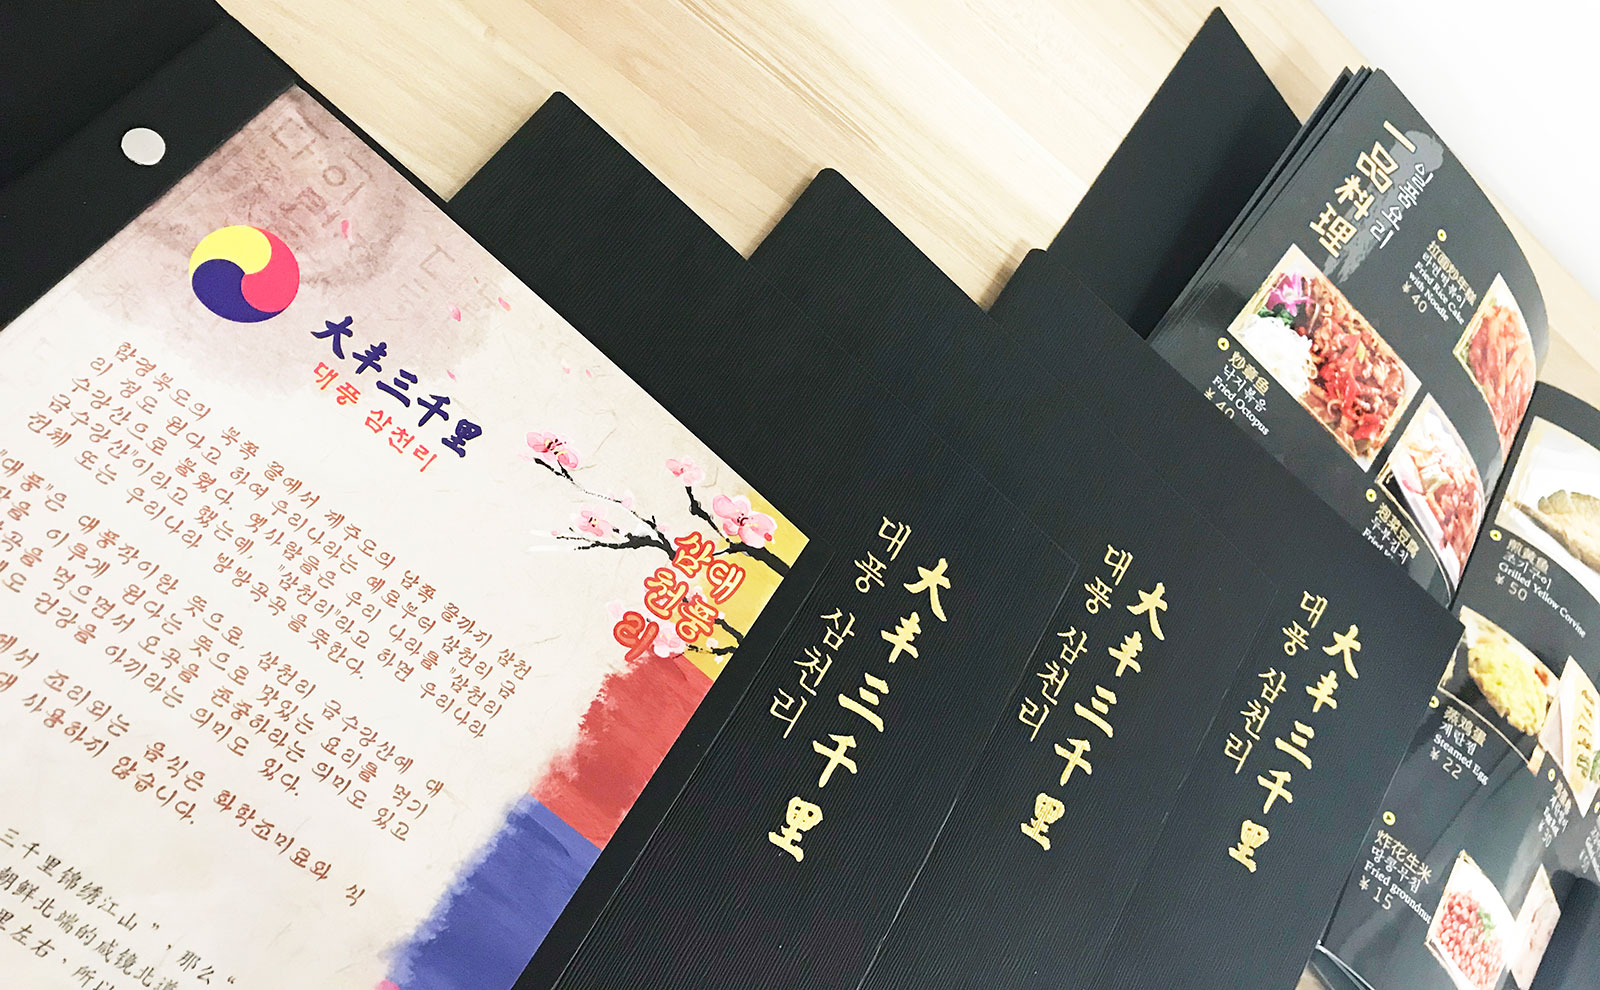 大丰三千里
대풍 삼천리
함경북도의 북쪽 끝에서 제주도의 남쪽 끝까지 삼천
리 정도 된다고 하여 우리나라는 예로부터 삼천리 금
수강산으로 불렸다. 옛사람들은 우리 나라를 "삼천리
금수강산"이라고 했는데, "삼천리"라고 하면 우리나라
전체 또는 우리나라 방방곡곡을 뜻한다.
"대풍"은 대풍작이란 뜻으로, 삼천리 금수강산에 대
이루게 된다는 뜻으로 맛있는 요리를 먹기
먹으면서 오곡을 존중하라는 의미도 있고
건강을 아끼라는 의미도 있다.
에서 조리되는 음식은 화학조미료와 식
사용하지 않습니다.
三千里锦绣江山”，那么“
朝鲜北端的咸镜北道
里左右，所以
대풍
삼천
리
大丰三千里
대풍 삼천리
大丰三千里
대풍 삼천리
大丰三千里
대풍 삼천리
一品料理
일품요리
拉面炒年糕
라면떡볶이
Fried Rice Cake
with Noodle
40
炒章鱼
낙지볶음
Fried Octopus
40
泡菜豆腐
두부김치
Fried
煎黄鱼
조기구이
Grilled Yellow Corvine
50
蒸鸡蛋
계란찜
Steamed Egg
22
30
炸花生米
땅콩무침
Fried groundnut
15